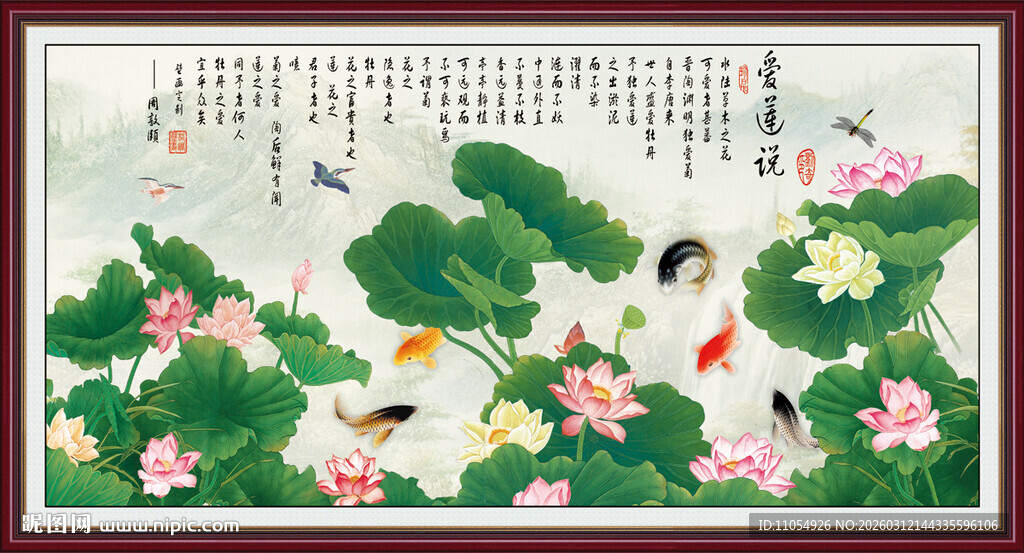 爱莲说
水陆草木之花
可爱者甚蕃
晋陶渊明独爱菊
自李唐来
世人盛爱牡丹
予独爱莲
之出淤泥
而不染
濯清
涟而不妖
中通外直
不蔓不枝
香远益清
亭亭静植
可远观而
不可亵玩焉
予谓菊
花之
隐逸者也
牡丹
花之富贵者也
莲 花之
君子者也
噫
菊之爱 陶后鲜有闻
莲之爱
同予者何人
牡丹之爱
宜乎众矣
——周敦颐
昵图网 www.nipic.com
ID:11054926 NO:20260312144335596106